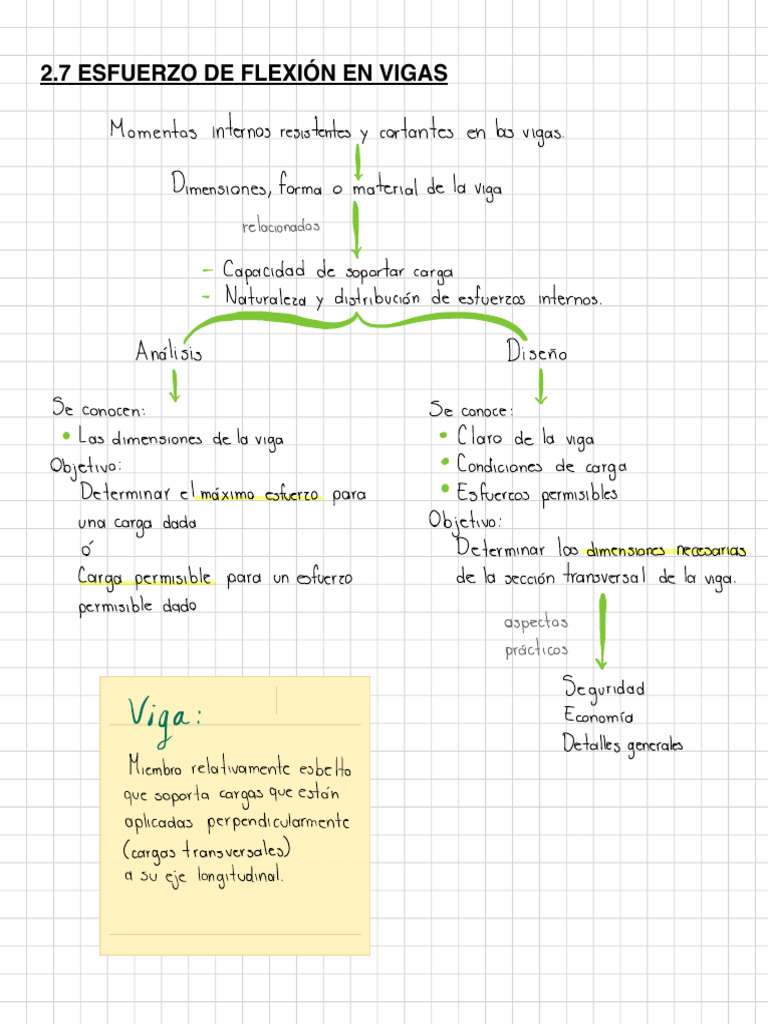 2.7 ESFUERZO DE FLEXIÓN EN VIGAS
Momentos internos resistentes y cortantes en las vigas.
Dimensiones, forma o material de la viga
relacionados
- Capacidad de soportar carga
- Naturaleza y distribución de esfuerzos internos.
Análisis
Se conocen:
• Las dimensiones de la viga
Objetivo:
Determinar el máximo esfuerzo para
una carga dada
ó
Carga permisible para un esfuerzo
permisible dado
Diseño
Se conoce:
• Claro de la viga
• Condiciones de carga
• Esfuerzos permisibles
Objetivo:
Determinar las dimensiones necesarias
de la sección transversal de la viga.
aspectos
prácticos
Seguridad
Economía
Detalles generales
Viga:
Miembro relativamente esbelto
que soporta cargas que están
aplicadas perpendicularmente
(cargas transversales)
a su eje longitudinal.